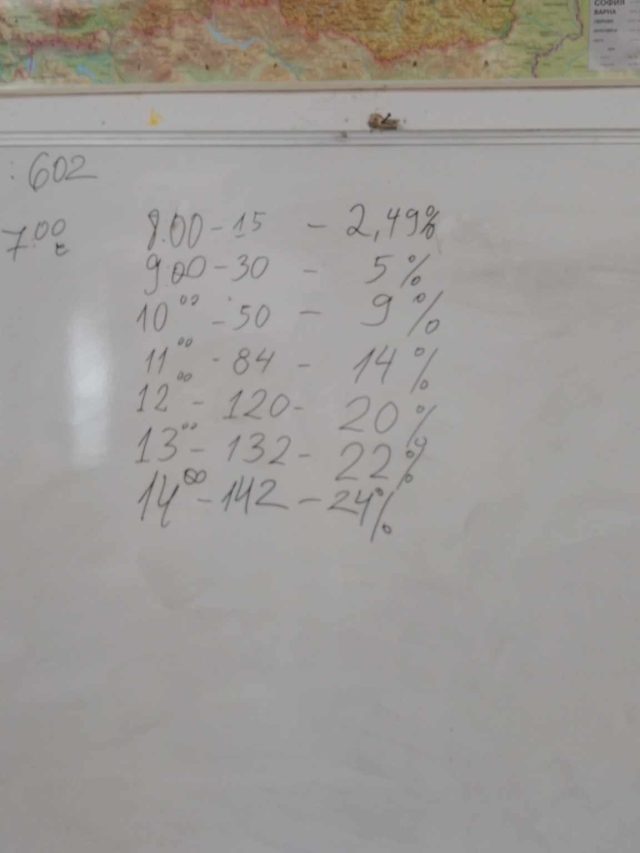 СОФИЯ
ВАРНА
: 602
7.00 ч
8.00 - 15 - 2,49%
9.00 - 30 - 5%
10 00 - 50 - 9%
11 00 - 84 - 14%
12 00 - 120 - 20%
13 00 - 132 - 22%
14 00 - 142 - 24%